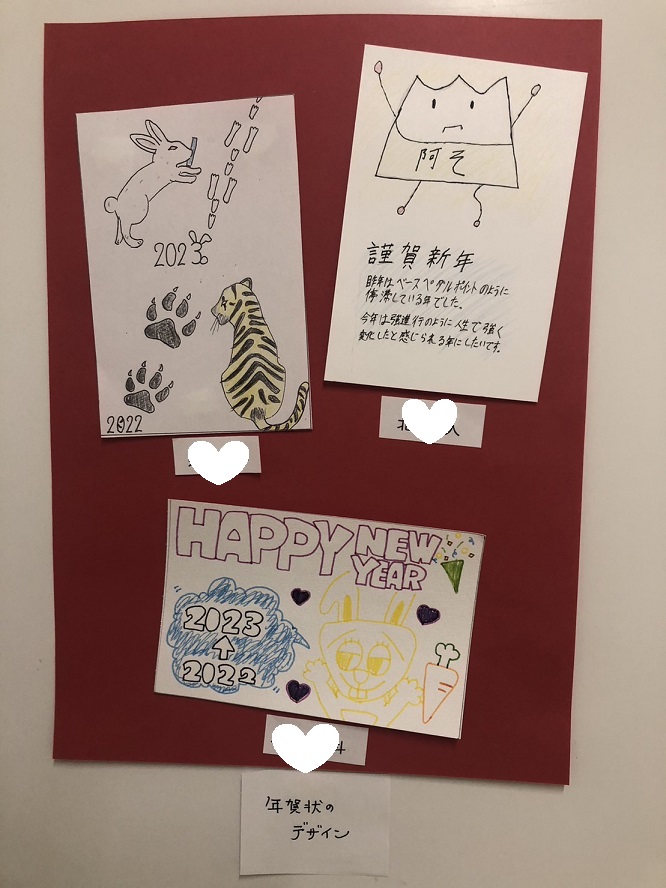 2023
2022
阿そ
謹賀新年
昨年はベースペダルポイントのように
停滞している年でした。
今年は強進行のように人生で強く
変化したと感じられる年にしたいです。
HAPPY NEW
YEAR
2023
2022
年賀状の
デザイン